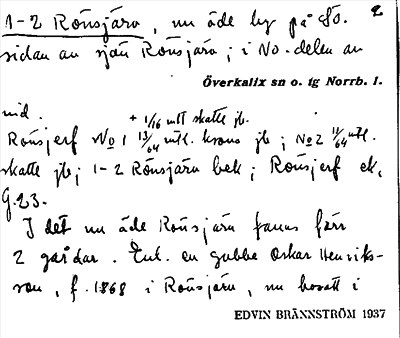 1-2 Rönsjärv, nu öde by på SO. 2
sidan av sjön Rönsjärv; i NO-delen av
Överkalix sn o. tg Norrb. l.
nid.
+ 1/16 mtl skatte jb.
Rönsjerf No 1 13/64 mtl. krono jb; No 2 11/64 mtl.
skatte jb; 1-2 Rönsjärv bek; Rönsjerf ek.
G.23.
I det nu öde Rönsjärv fanns förr
2 gårdar. Enl. en gubbe Oskar Henriks-
son, f. 1868 i Rönsjärv, nu bosatt i
EDVIN BRÄNNSTRÖM 1937